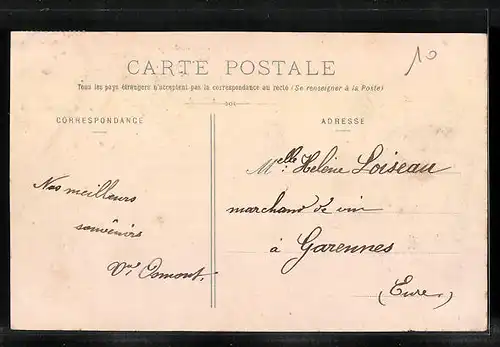 10
CARTE POSTALE
Tous les pays étrangers n'acceptent pas la correspondance au recto (Se renseigner à la Poste)
CORRESPONDANCE
ADRESSE
Nos meilleurs
souvenirs
Vve Osmont.
Melle Hélène Loiseau
marchand de vin
à Garennes
(Eure)